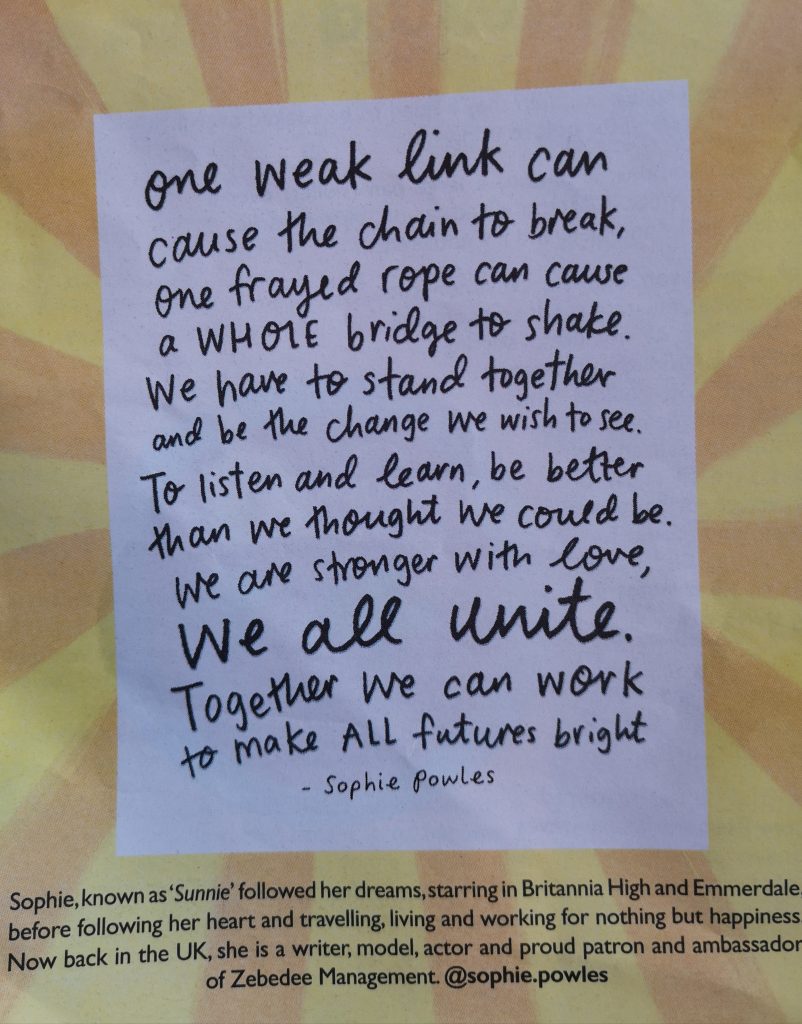 one weak link can
cause the chain to break,
one frayed rope can cause
a WHOLE bridge to shake.
We have to stand together
and be the change we wish to see.
To listen and learn, be better
than we thought we could be.
We are stronger with love,
We all unite.
Together we can work
to make ALL futures bright
- Sophie Powles
Sophie, known as 'Sunnie' followed her dreams, starring in Britannia High and Emmerdale,
before following her heart and travelling, living and working for nothing but happiness
Now back in the UK, she is a writer, model, actor and proud patron and ambassador
of Zebedee Management. @sophie.powles